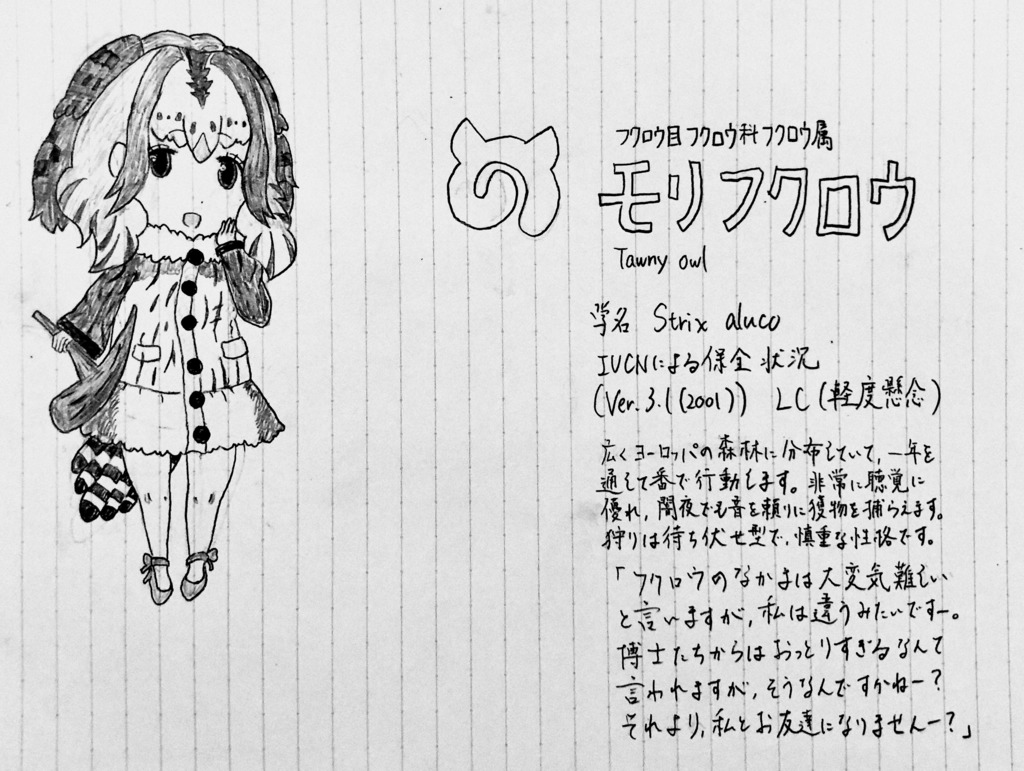 の
フクロウ目フクロウ科フクロウ属
モリフクロウ
Tawny owl
学名 Strix aluco
IUCNによる保全状況
(Ver.3.1(2001)) LC(軽度懸念)
広くヨーロッパの森林に分布していて、一年を
通して番で行動します。非常に聴覚に
優れ、闇夜でも音を頼りに獲物を捕らえます。
狩りは待ち伏せ型で、慎重な性格です。
「フクロウのなかまは大変気難しい
と言いますが、私は違うみたいですー。
博士たちからはおっとりすぎるなんて
言われますが、そうなんですかねー？
それより、私とお友達になりませんー？」